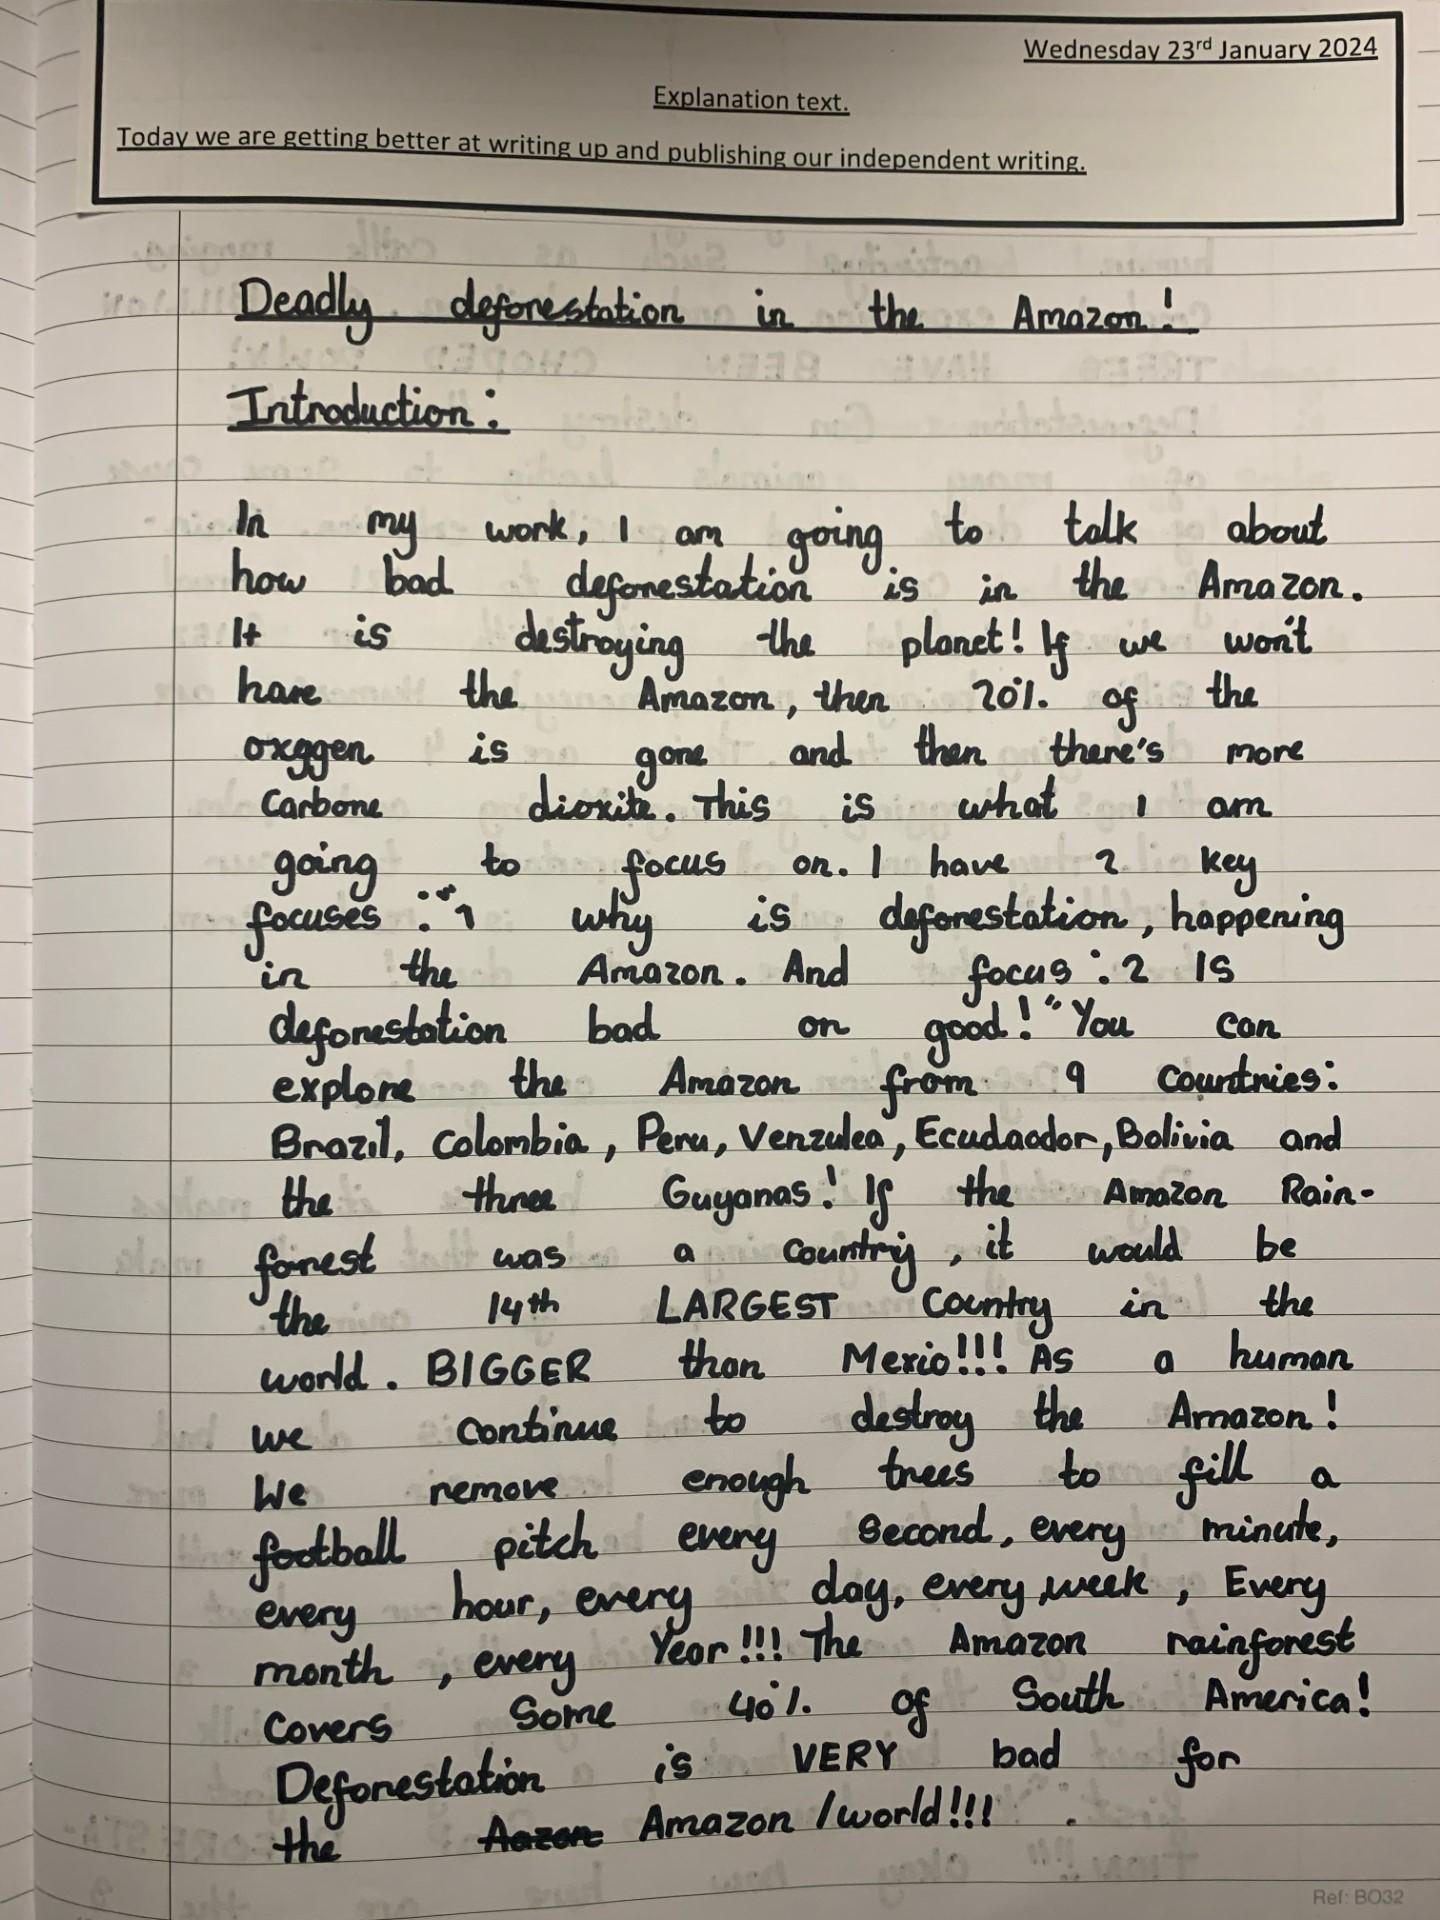 Wednesday 23rd January 2024
Explanation text.
Today we are getting better at writing up and publishing our independent writing.
Deadly deforestation in the Amazon!
Introduction:
In my work, I am going to talk about
how bad deforestation is in the Amazon.
It is destroying the planet! If we won't
have the Amazon, then 20% of the
oxggen is gone and then there's more
Carbone dioxite. This is what I am
going to focus on. I have 2 key
focuses :"1 why is deforestation, happening
in the Amazon. And focus : 2 Is
deforestation bad or good!" You can
explore the Amazon from 9 Countries:
Brazil, Colombia, Peru, Venzulea, Ecudaodor, Bolivia and
the three Guyanas! If the Amazon Rain-
forest was a Country, it would be
the 14th LARGEST Country in the
world. BIGGER than Mexio!!! As a human
we continue to destroy the Amazon!
We remove enough trees to fill a
football pitch every second, every minute,
every hour, every day, every week, Every
month, every Year!!! The Amazon rainforest
Covers Some 40% of South America!
Deforestation is VERY bad for
the Aazon Amazon /world!!!
Ref: BO32